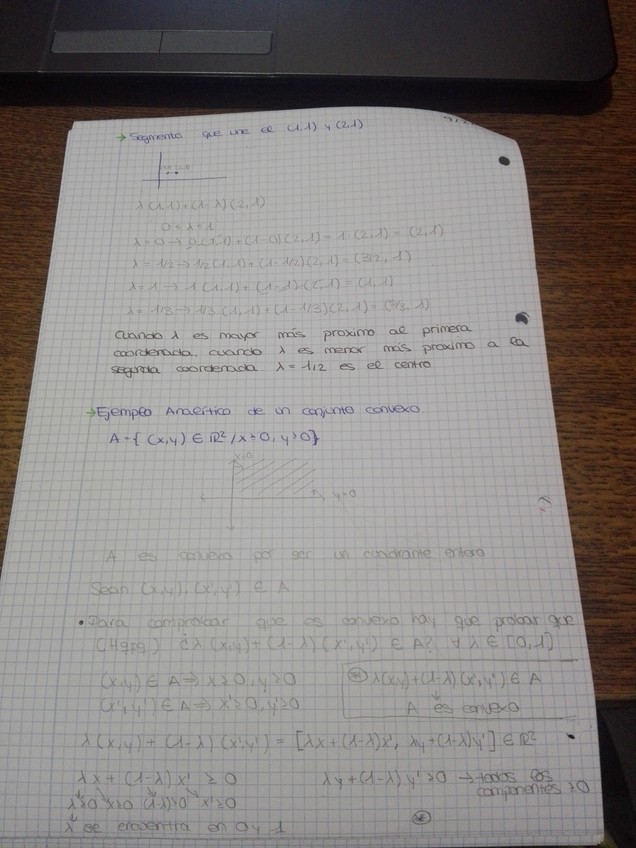 → Segmento que une el (1,1) y (2,1)
λ(1,1)+(1-λ)(2,1)
0 ≤ λ ≤ 1
λ=0 → 0(1,1)+(1-0)(2,1) = 1·(2,1) = (2,1)
λ=1/2 → 1/2(1,1)+(1-1/2)(2,1) = (3/2, 1)
λ=1 → 1(1,1)+(1-1)(2,1) = (1,1)
λ=1/3 → 1/3(1,1)+(1-1/3)(2,1) = (5/3, 1)
Cuando λ es mayor más proximo al primera
coordenada, cuando λ es menor más proximo a la
segunda coordenada λ=1/2 es el centro
→ Ejemplo Analítico de un conjunto convexo.
A={(x,y) ∈ ℝ²/x≥0, y≥0}
x=0
y=0
A es convexo por ser un cuadrante entero
Sean (x,y), (x',y') ∈ A
• Para comprobar que es convexo hay que probar que
¿λ(x,y)+(1-λ)(x',y') ∈ A? ∀ λ ∈ [0,1]
(x,y) ∈ A ⇒ x≥0, y≥0
(x',y') ∈ A ⇒ x'≥0, y'≥0
* λ(x,y)+(1-λ)(x',y') ∈ A
A es convexo
λ(x,y)+(1-λ)(x',y') = [λx+(1-λ)x', λy+(1-λ)y'] ∈ ℝ²
λx+(1-λ)x' ≥ 0
λy+(1-λ)y' ≥0 → todos los
componentes ≥0
λ≥0 x≥0 (1-λ)≥0 x'≥0
λ se encuentra en 0 y 1
*